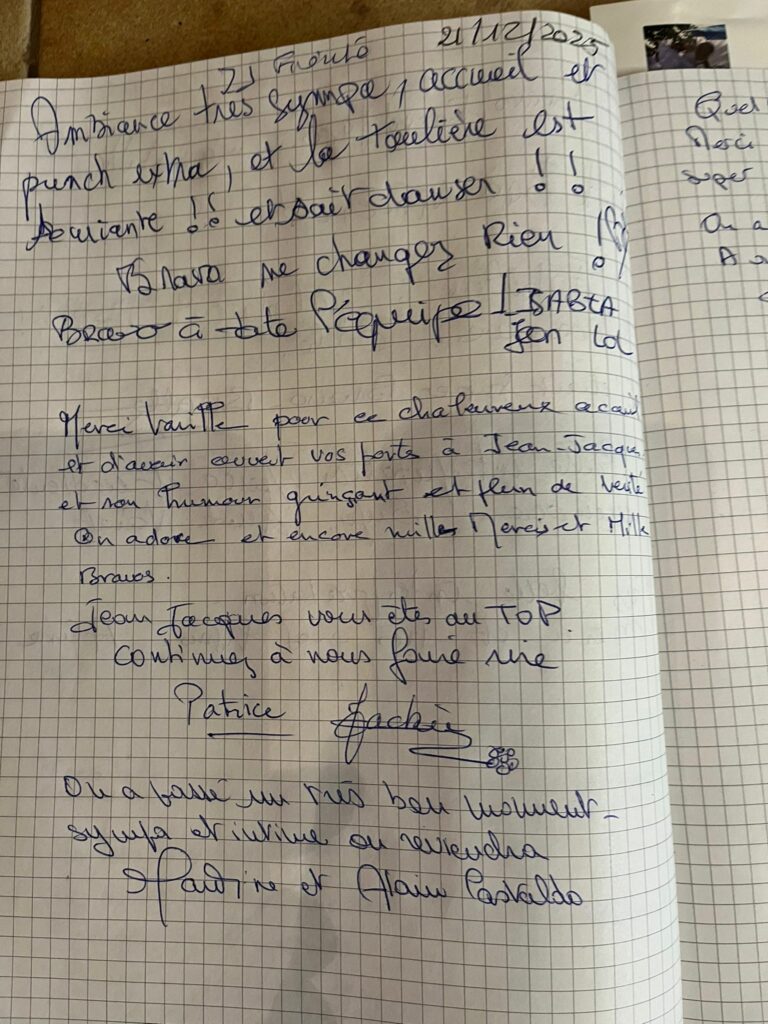 21/12/2025
Ambiance très sympa, accueil et
punch extra, et la taulière est
!! et sait danser !!
Brava ne changez Rien !
Bravo à tte l'équipe !
Merci Vanille pour ce chaleureux
et d'avoir ouvert vos porte à Jean-Jacques
et son humour grinçant et plein de
On adore et encore milles Mercis et Mille
Bravos.
Jean Jacques vous êtes au TOP.
Continuez à nous faire rire
Patrice Jackie
On a passé un très bon moment
sympa et intime on reviendra
Martine et Alain Castaldo
Quel
Merci
super
On a
A